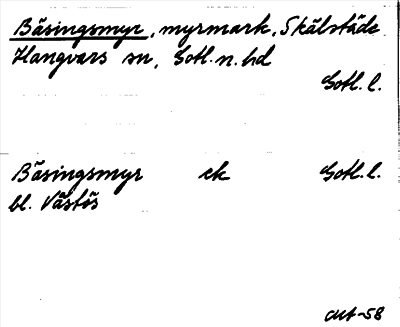 Bäsingsmyr, myrmark, Skälstäde
Hangvars sn, Gotl. n. hd
Gotl. l.
Bäsingsmyr ek Gotl. l.
bl. Västös